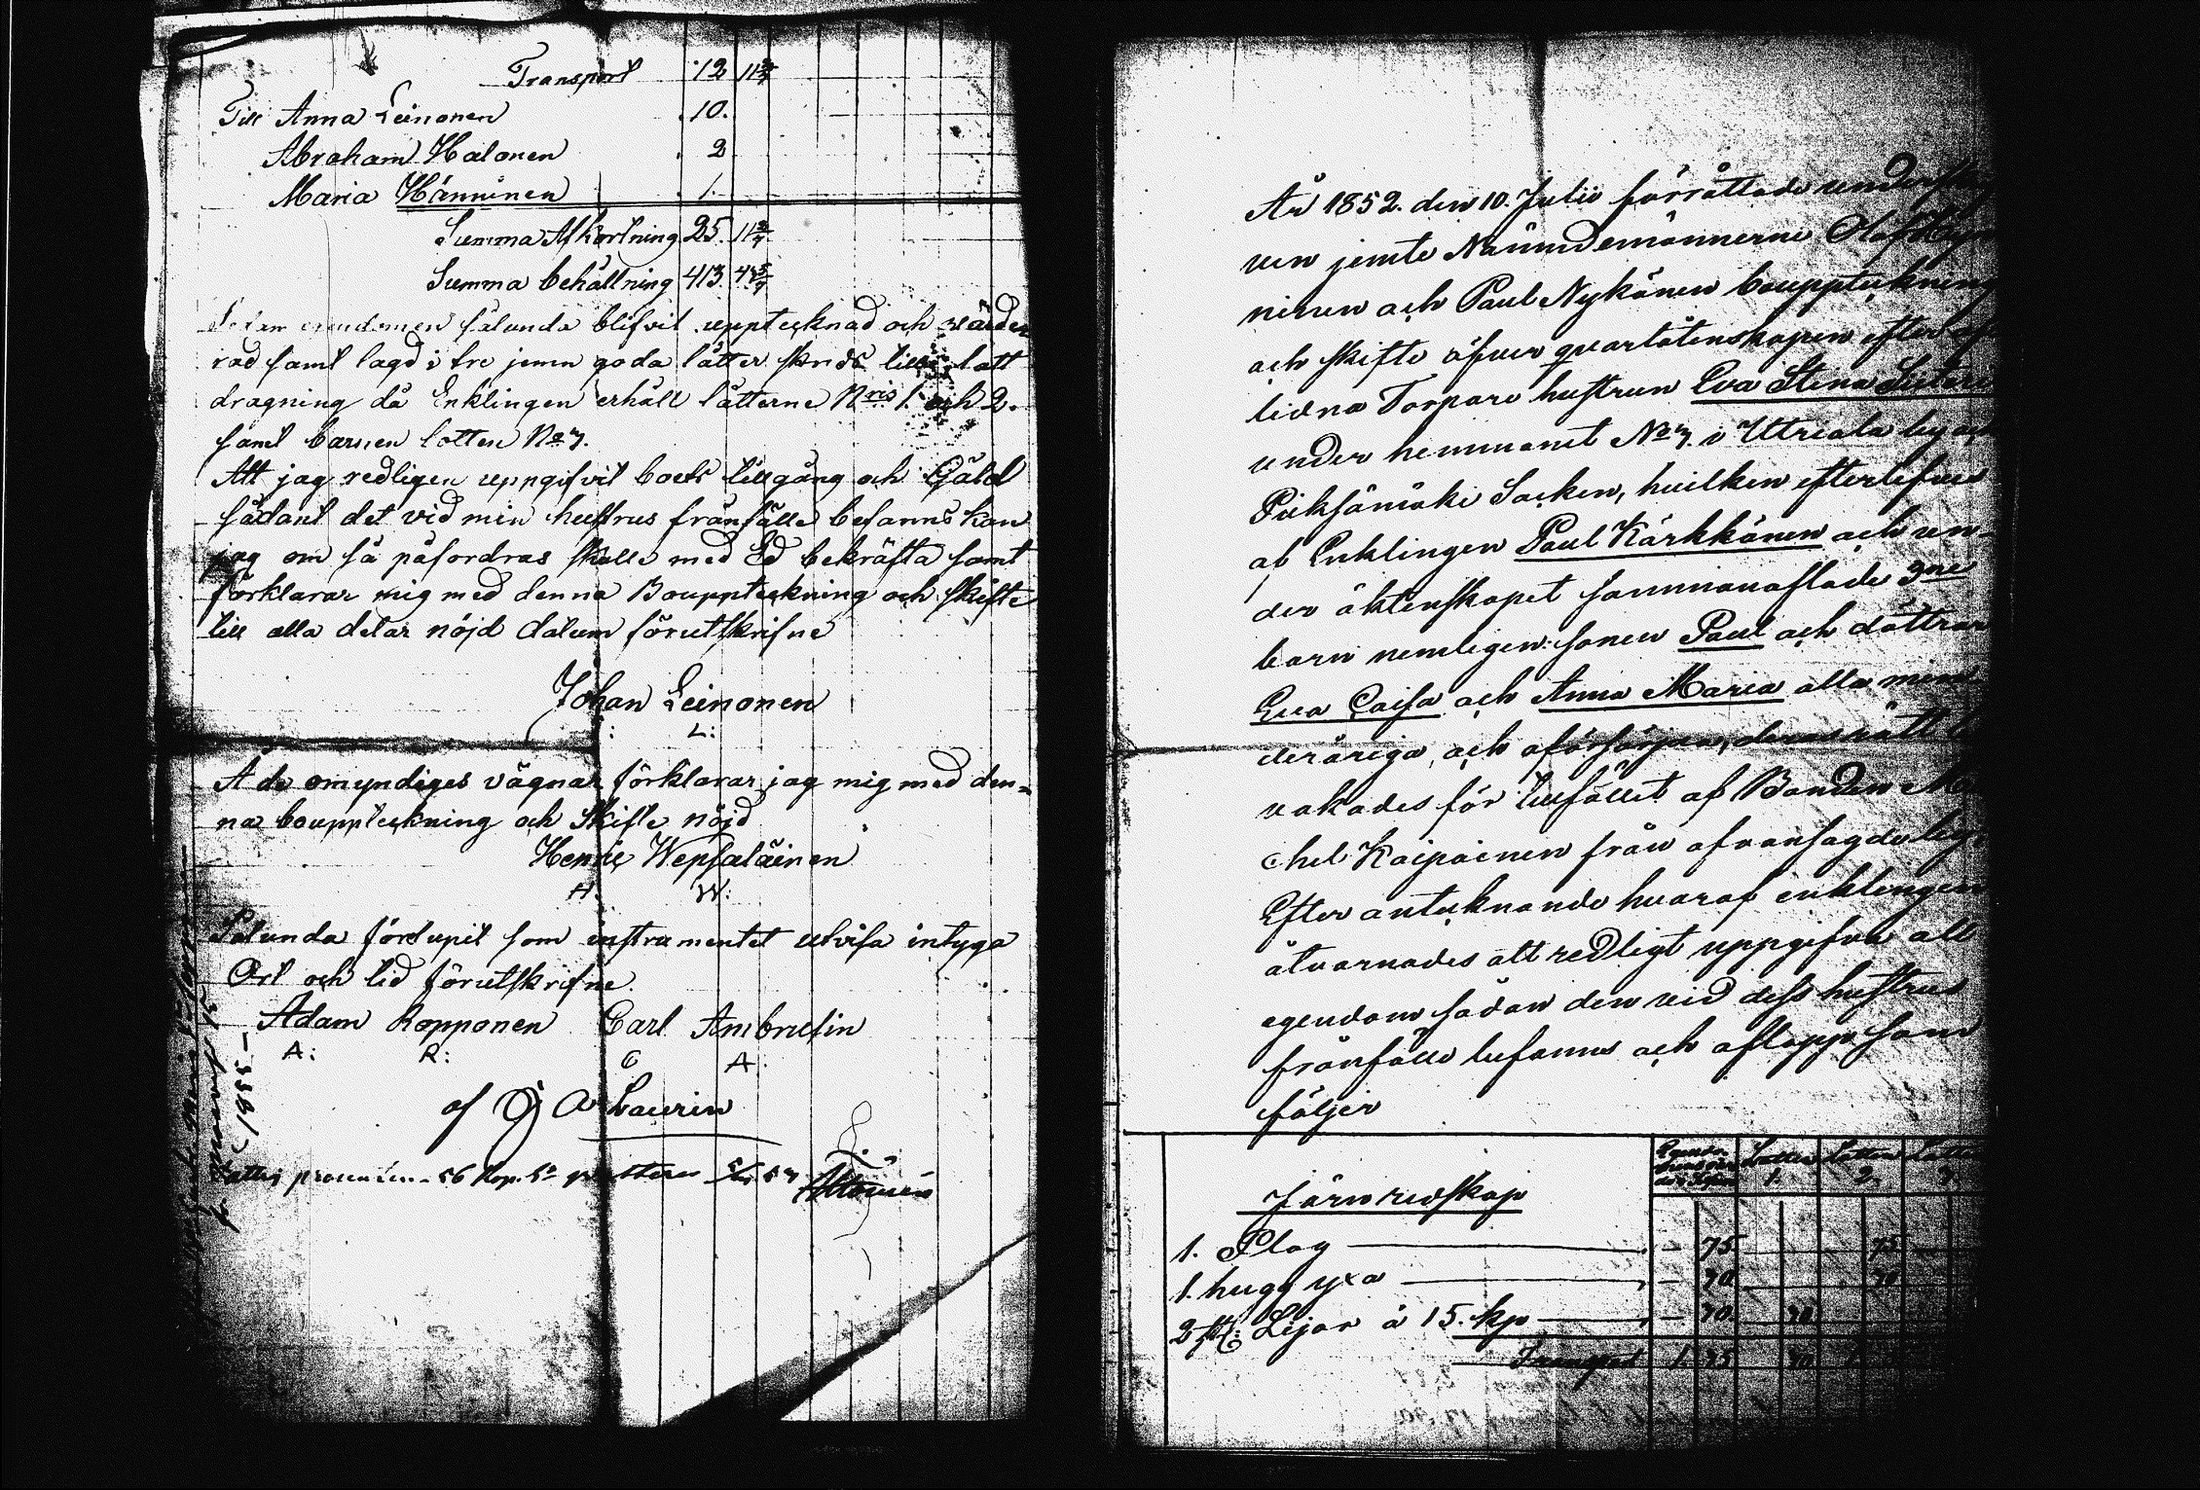 Transport 12 11 3/7
Till Anna Leinonen 10.
Abraham Halonen 2
Maria Hänninen 1.
Summa Afkortning 25. 11 3/7
Summa behållning 413. 48 5/7
Sedan egendomen sålunda blifvit uppteknad och värde
rad samt lagd i tre jemn goda låtter skreds till lått
dragning då Enklingen erhåll låtterne Nris 1. och 2.
samt barnen lotten No 3.
Att jag redligen uppgifvit boets tillgång och Gäld
sådant det vid min hustrus frånfälle befanns kan
jag om så påfordras skulle med Ed bekräfta samt
förklarar mig med denna Bouppteckning och skifte
till alla delar nöjd datum förutskrifne
Johan Leinonen
L:
Å de omyndiges vägnar förklarar jag mig med den=
na bouppteckning och skifte nöjd
Henric Wepsäläinen
H: W:
Sålunda förelupit som instrumentet utvisa intyga
Ort och tid förutskrifne.
Adam Ropponen Carl Ambrusin
A: R: C A:
af Laurin
56 kop. Sr
1853
År 1852. den 10. Julii förrättade
ven jemte Nämndemännerne Olof
ninen och Paul Nykänen bouppteckning
och skifte öfver qvarlåtenskapen efter af
lidna Torpare hustrun Eva Stina
under hemmanet No 3. i Utriala by
Pieksämäki Socken, hvilken efterlefves
af Enklingen Paul Kärkkänen och un-
der äktenskapet sammanaflade 3ne
barn nemligen: sonen Paul och döttrar
Eva Caisa och Anna Maria alla min
deråriga, och oförsörjda, deras rätt be
vakades för tillfället af Bonden Mi
chel Kaipainen från ofvansagde by.
Efter anteknande hvaraf enklingen
åtvarnades att redligt uppgifva all
egendom sådan den vid dess hustrus
frånfälle befanns och aflopp som
följer
Lotten 1. Lotten 2. Lotten 3.
Järn redskap
1. Plog — 75 75
1. hugg yxa — 70 70
2 st: Lijor à 15. kp — 30 30
Transport 1. 75 30